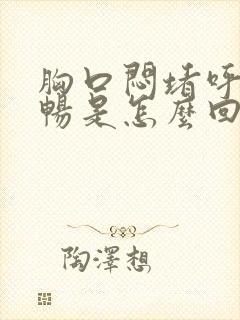 胸口悶堵呼
暢是怎麼回
陶澤想